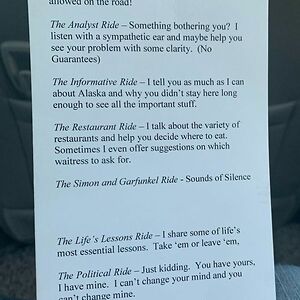 allowed on the road!
The Analyst Ride – Something bothering you? I
listen with a sympathetic ear and maybe help you
see your problem with some clarity. (No
Guarantees)
The Informative Ride – I tell you as much as I can
about Alaska and why you didn't stay here long
enough to see all the important stuff.
The Restaurant Ride – I talk about the variety of
restaurants and help you decide where to eat.
Sometimes I even offer suggestions on which
waitress to ask for.
The Simon and Garfunkel Ride - Sounds of Silence
The Life's Lessons Ride – I share some of life's
most essential lessons. Take 'em or leave 'em,
The Political Ride – Just kidding. You have yours,
I have mine. I can't change your mind and you
can't change mine.